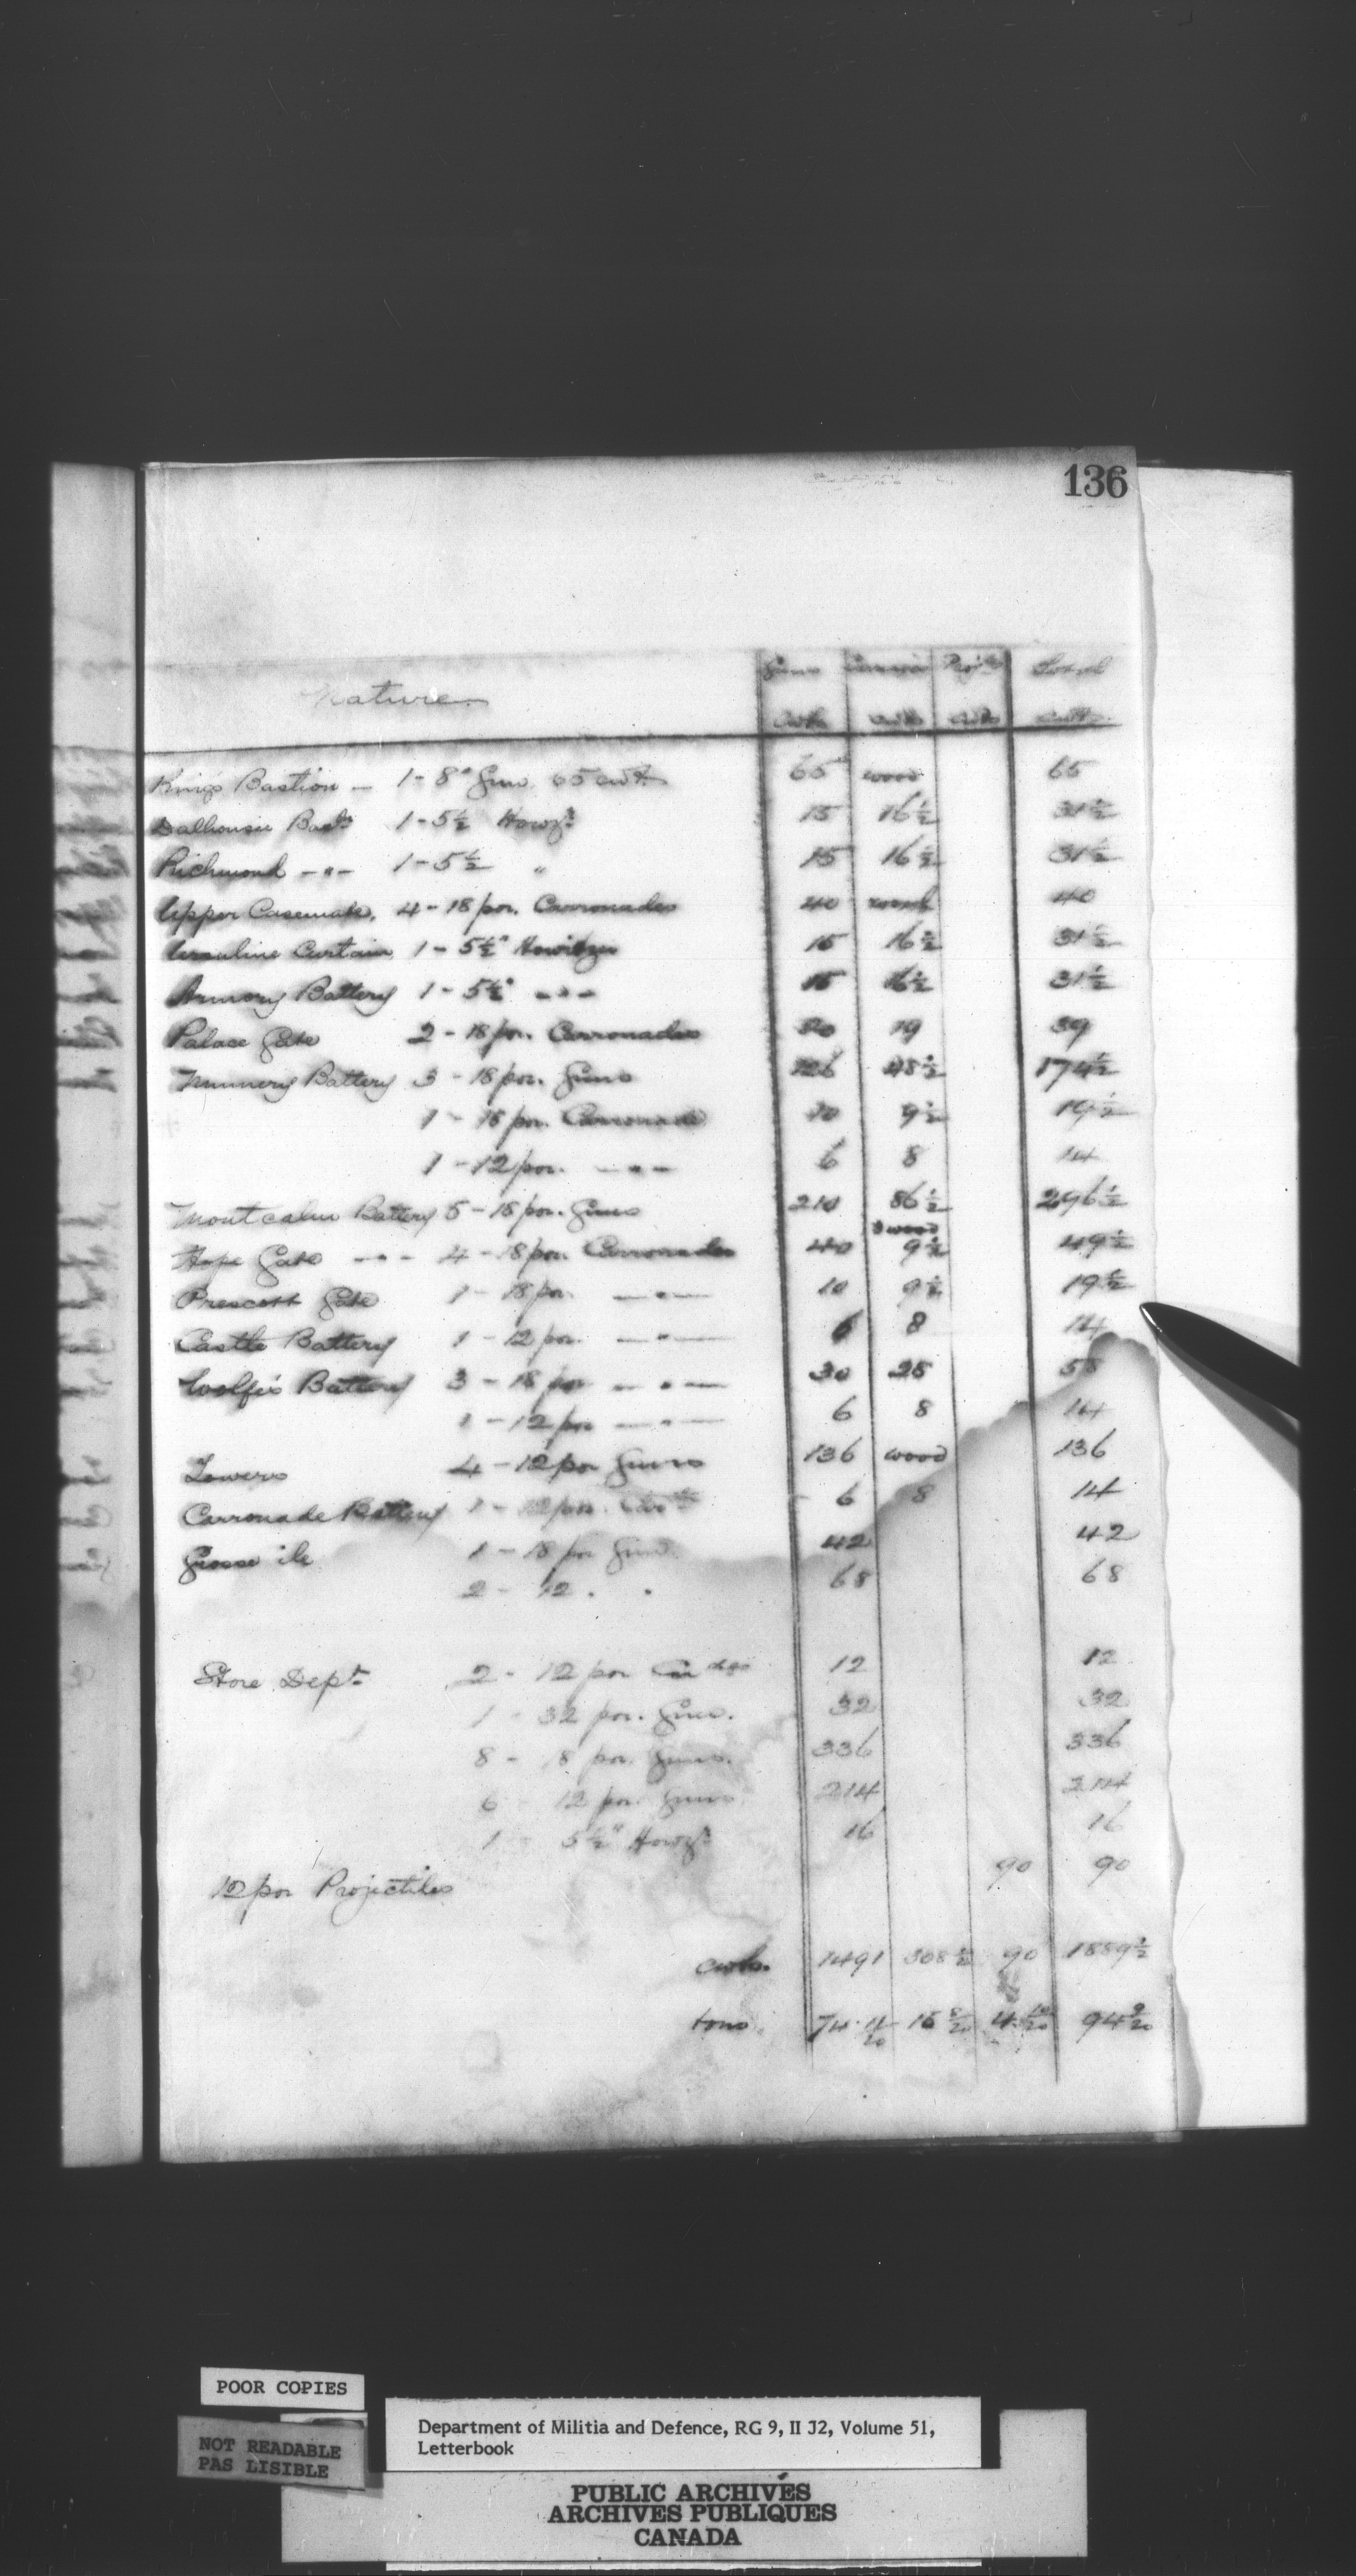 136
Nature Guns Proj Total
cwts cwts cwts cwts
Kings Bastion — 1 - 8" Gun 65 cwt 65 wood 65
Dalhousie Bastn 1 - 5½ Howzr 15 16½ 31½
Richmond -"- 1 - 5½ " 15 16½ 31½
Upper Casemate. 4 - 18 por. Carronades 40 wood 40
Ursuline Curtain 1 - 5½" Howitzer 15 16½ 31½
Armory Battery 1 - 5½" -"- 15 16½ 31½
Palace Gate 2 - 18 por. Carronades 20 19 39
Nunnery Battery 3 - 18 por. Guns 126 48½ 174½
1 - 18 por. Carronade 10 9½ 19½
1 - 12 por. -"- 6 8 14
Montcalm Battery 5 - 18 por. Guns 210 86½ 296½
3 wood
Hope Gate -"- 4 - 18 por. Carronades 40 9½ 49½
Prescott Gate 1 - 18 por -"- 10 9½ 19½
Castle Battery 1 - 12 por. -"- 6 8 14
Wolfe's Battery 3 - 18 por -"- 30 28 58
1 - 12 por -"- 6 8 14
Towers 4 - 12 por Guns 136 wood 136
Carronade Battery 1 - 12 por. 6 8 14
Grosse ile 1 - 18 por Gun 42 42
2 - 12 . " 68 68
Store Dept 2 - 12 por 12 12
1 - 32 por. Gun. 32 32
8 - 18 por. Guns. 336 336
6 - 12 por Guns 214 214
1 - 5½" Howzr 16 16
12 por Projectiles 90 90
cwts. 1491 308½ 90 1889½
tons. 74 11/20 15 8/20 4 10/20 94 9/20
POOR COPIES
NOT READABLE
PAS LISIBLE
Department of Militia and Defence, RG 9, II J2, Volume 51,
Letterbook
PUBLIC ARCHIVES
ARCHIVES PUBLIQUES
CANADA